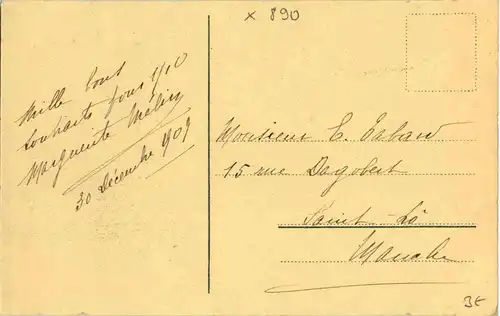 x 890
Mille bons
souhaits pour 1910
Marguerite
30 Décembre 1909
Monsieur E.
15 rue Dagobert
Saint-Lô
Manche
3€